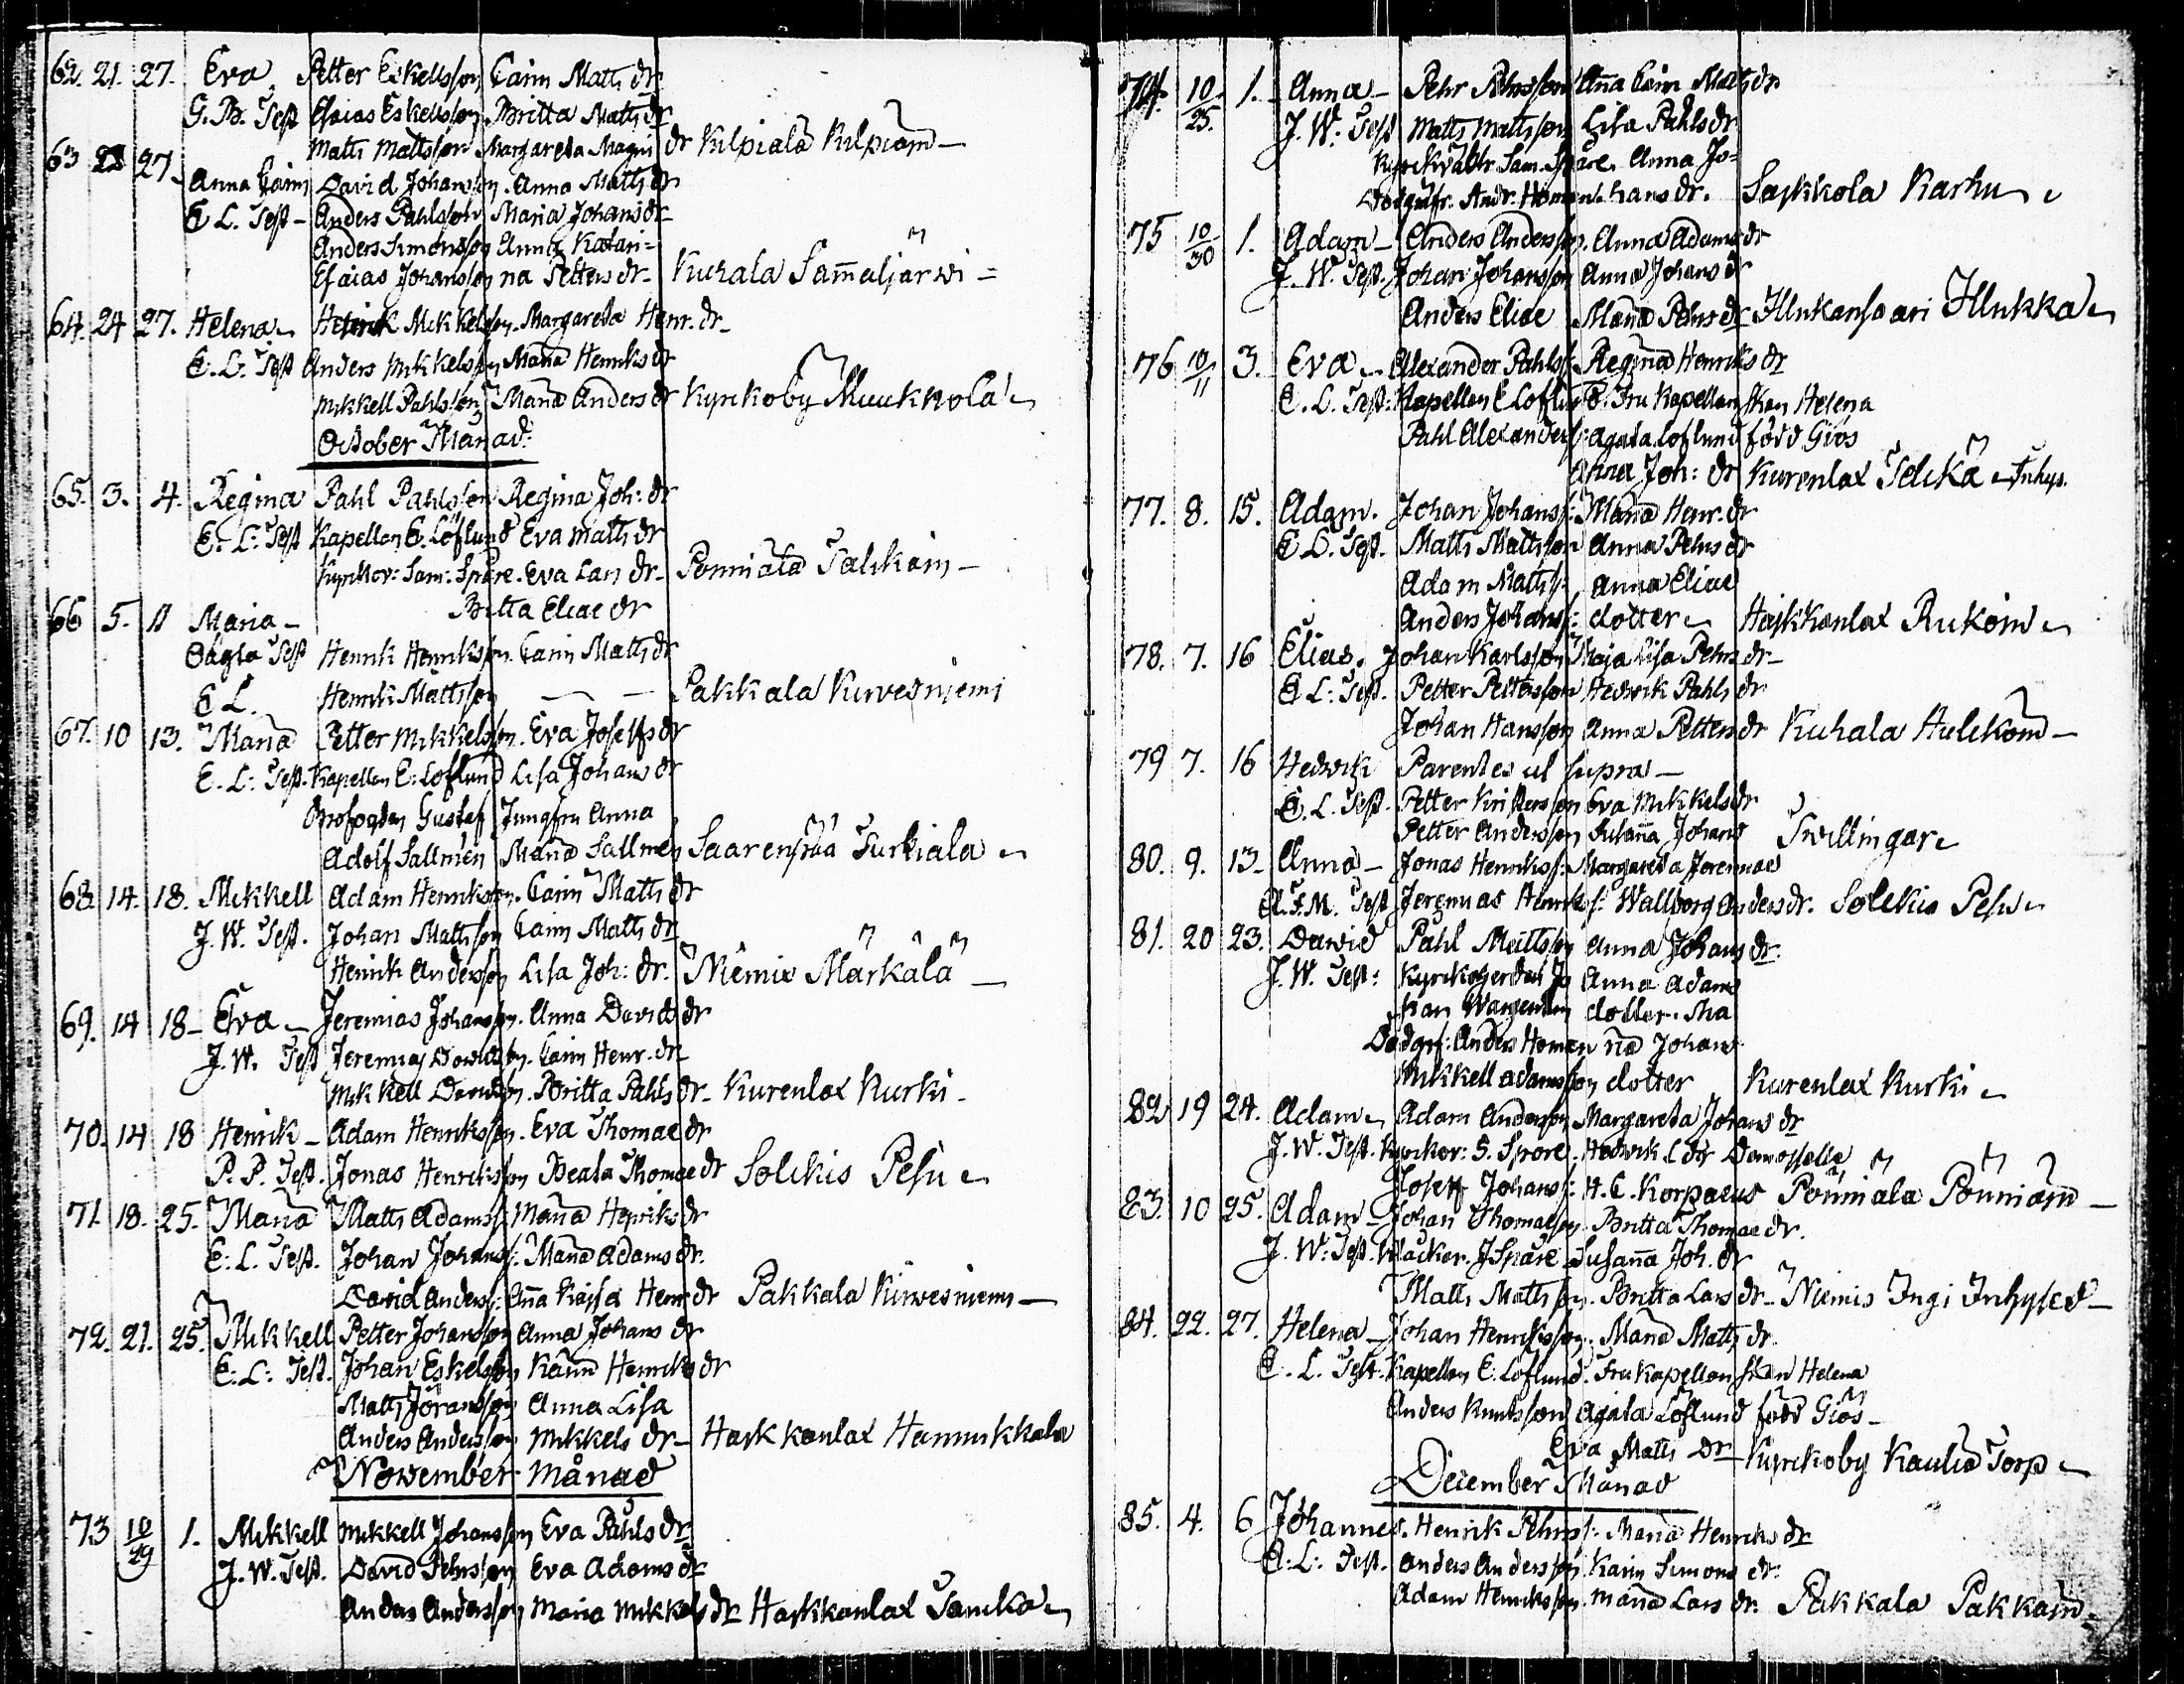 62. 21. 27. Eva, Petter Eskellsson Carin Matts dr
G. B. Test Esaias Eskellsson Britta Matts dr
Matts Mattsson Margareta Magni dr Kilpiala Kilpiäin
63 23 27. Anna Carin David Johansson. Anna Matts dr
E L. Test - Anders Pahlsson Maria Johans dr
Anders Simonsson Anna Katari=
Esaias Johansson na Petters dr - Kuhala Sam̄aljärwi =
64. 24 27. Helena Henrik Mikkelsson. Margareta Henr. dr
E. L. Test Anders Mikkelsson Maria Henriks dr
Mikkell Pahlsson Maria Anders dr Kyrkoby Muukkola
October Månad:
65. 3. 4. Regina Pahl Pahlsson Regina Joh: dr
E: L: Test Kapellan E. Löflund Eva Matts dr
Kyrkov: Sam: Spåre. Eva Lars dr - Ponniala
66 5. 11 Maria - Britta Eliae dr
Oägta Test Henrik Henriksson. Carin Matts dr
E L. Henrik Mattsson — — Pakkala Kirvesniemi
67. 10 13. Maria Petter Mikkelsson. Eva Josefs dr
E. L: Test. Kapellan E: Löflund Lisa Johans dr
Brofogden Gustaf Jungfru Anna
Adolf Sallmén Maria Sallmén Saarenpää Turkiala
68. 14. 18. Mikkell Adam Henriksson. Carin Matts dr
J. W. Test. Johan Mattsson Carin Matts dr
Henrik Andersson Lisa Joh: dr. Niemis Märkälä
69. 14 18 - Eva - Jeremias Johansson. Anna Davids dr
J. W. Test Jeremias Davidsson. Carin Henr. dr
Mikkell Davidsson. Britta Pahls dr - Kurenlax Kurki -
70. 14 18 Henrik - Adam Henriksson. Eva Thomae dr
P. P. Test. Jonas Henriksson Beata Thomae dr Solckis Pesu
71. 18. 25. Maria Matts Adamss: Maria Henriks dr
E: L. Test. Johan Johanss: Maria Adams dr.
David Anderss: An̄a Kajsa Henr dr Pakkala Kirvesniemi —
72. 21. 25. Mikkell Petter Johansson Anna Johans dr
E: L: Test. Johan Eskelsson Karin Henriks dr
Matts Göransson Anna Lisa
Anders Andersson Mikkels dr - Harkkanlax Hannukkala
November Månad
73 10/29 1. Mikkell Mikkell Johansson Eva Pahls dr
J. W. Test. David Pehrsson Eva Adams dr
Anders Andersson Maria Mikkels dr Harkkanlax
74. 10/25. 1. Anna - Pehr Pehrsson An̄a Carin Matts dr
J. W: Test Matts Mattsson Lisa Pahls dr
Kyrkvakt. Sam. Spåre. Anna Jo=
Dödgräfr. Andr. Homen hans dr. Saskkola Karhu
75 10/30 1. Adam - Anders Andersson. Anna Adams dr
J. W. Test. Johan Johansson Anna Johans dr
Anders Eliae Maria Pehrs dr Ilukansaari Ilukka
76 10/11 3. Eva - Alexander Pahlss: Regina Henriks dr
E. L. Test: Kapellan E Löflund. Fru Kapellanskan Helena
Pahl Alexanders: Agata Löflund född Giös
Anna Joh: dr Kurenlax Inhys.
77. 8. 15. Adam. Johan Johanss: Maria Henr. dr
E L. Test. Matts Mattsson Anna Pehrs dr
Adam Mattss: Anna Eliae
Anders Johanss: dotter Harkkanlax
78. 7. 16 Elias. Johan Karlsson Maja Lisa Pehrs dr -
E L: Test. Petter Pettersson Hedwik Pahls dr
Johan Hansson Anna Petters dr Kuhala Hulckoin —
79 7. 16 Hedwik Parentes ut supra —
E. L. Test. Petter Kristersson Eva Mikkels dr
Petter Andersson Susan̄a Johans Twillingar
80. 9. 13 - Anna - Jonas Henrikss: Margareta Jeremiae
A. F. M. Test Jeremias Henrikss: Wallborg Anders dr. Solckis Pesu
81. 20 23. David Pahl Mattsson Anna Johans dr.
J. W. Test: Kyrkoherden Jo Anna Adams
han Wanænlin dotter. Ma
Dödgrf: Anders Homen ria Johans
Mikkell Adamsson dotter Kurenlax Kurki
82 19 24. Adam Adam Andersson. Margareta Johans dr
J. W. Test. Kyrkov: S. Spore. Hedvik L dr Demoiselle
Josef Johanss: H. C. Korpaeus Pönniälä Pönniäin —
83. 10 25. Adam - Johan Thomasson. Britta Thomae dr.
J. W: Test. Klåckar. J Spåre Susan̄a Joh. dr
Matts Mattsson. Britta Lars dr - Niemis Ingi Inhyses —
84. 22. 27. Helena - Johan Henriksson. Maria Matts dr
E. L. Test. Kapellan E: Löflund. Fru Kapellanskan Helena
Anders Knutsson Agata Löflund född Giös -
Eva Matts Dr Kyrkoby Torp
December Månad
85. 4. 6 Johannes. Henrik Pehrss: Maria Henriks dr
E: L: Test. Anders Andersson. Karin Simons dr.
Adam Henriksson. Maria Lars dr. Pakkala Pakkain